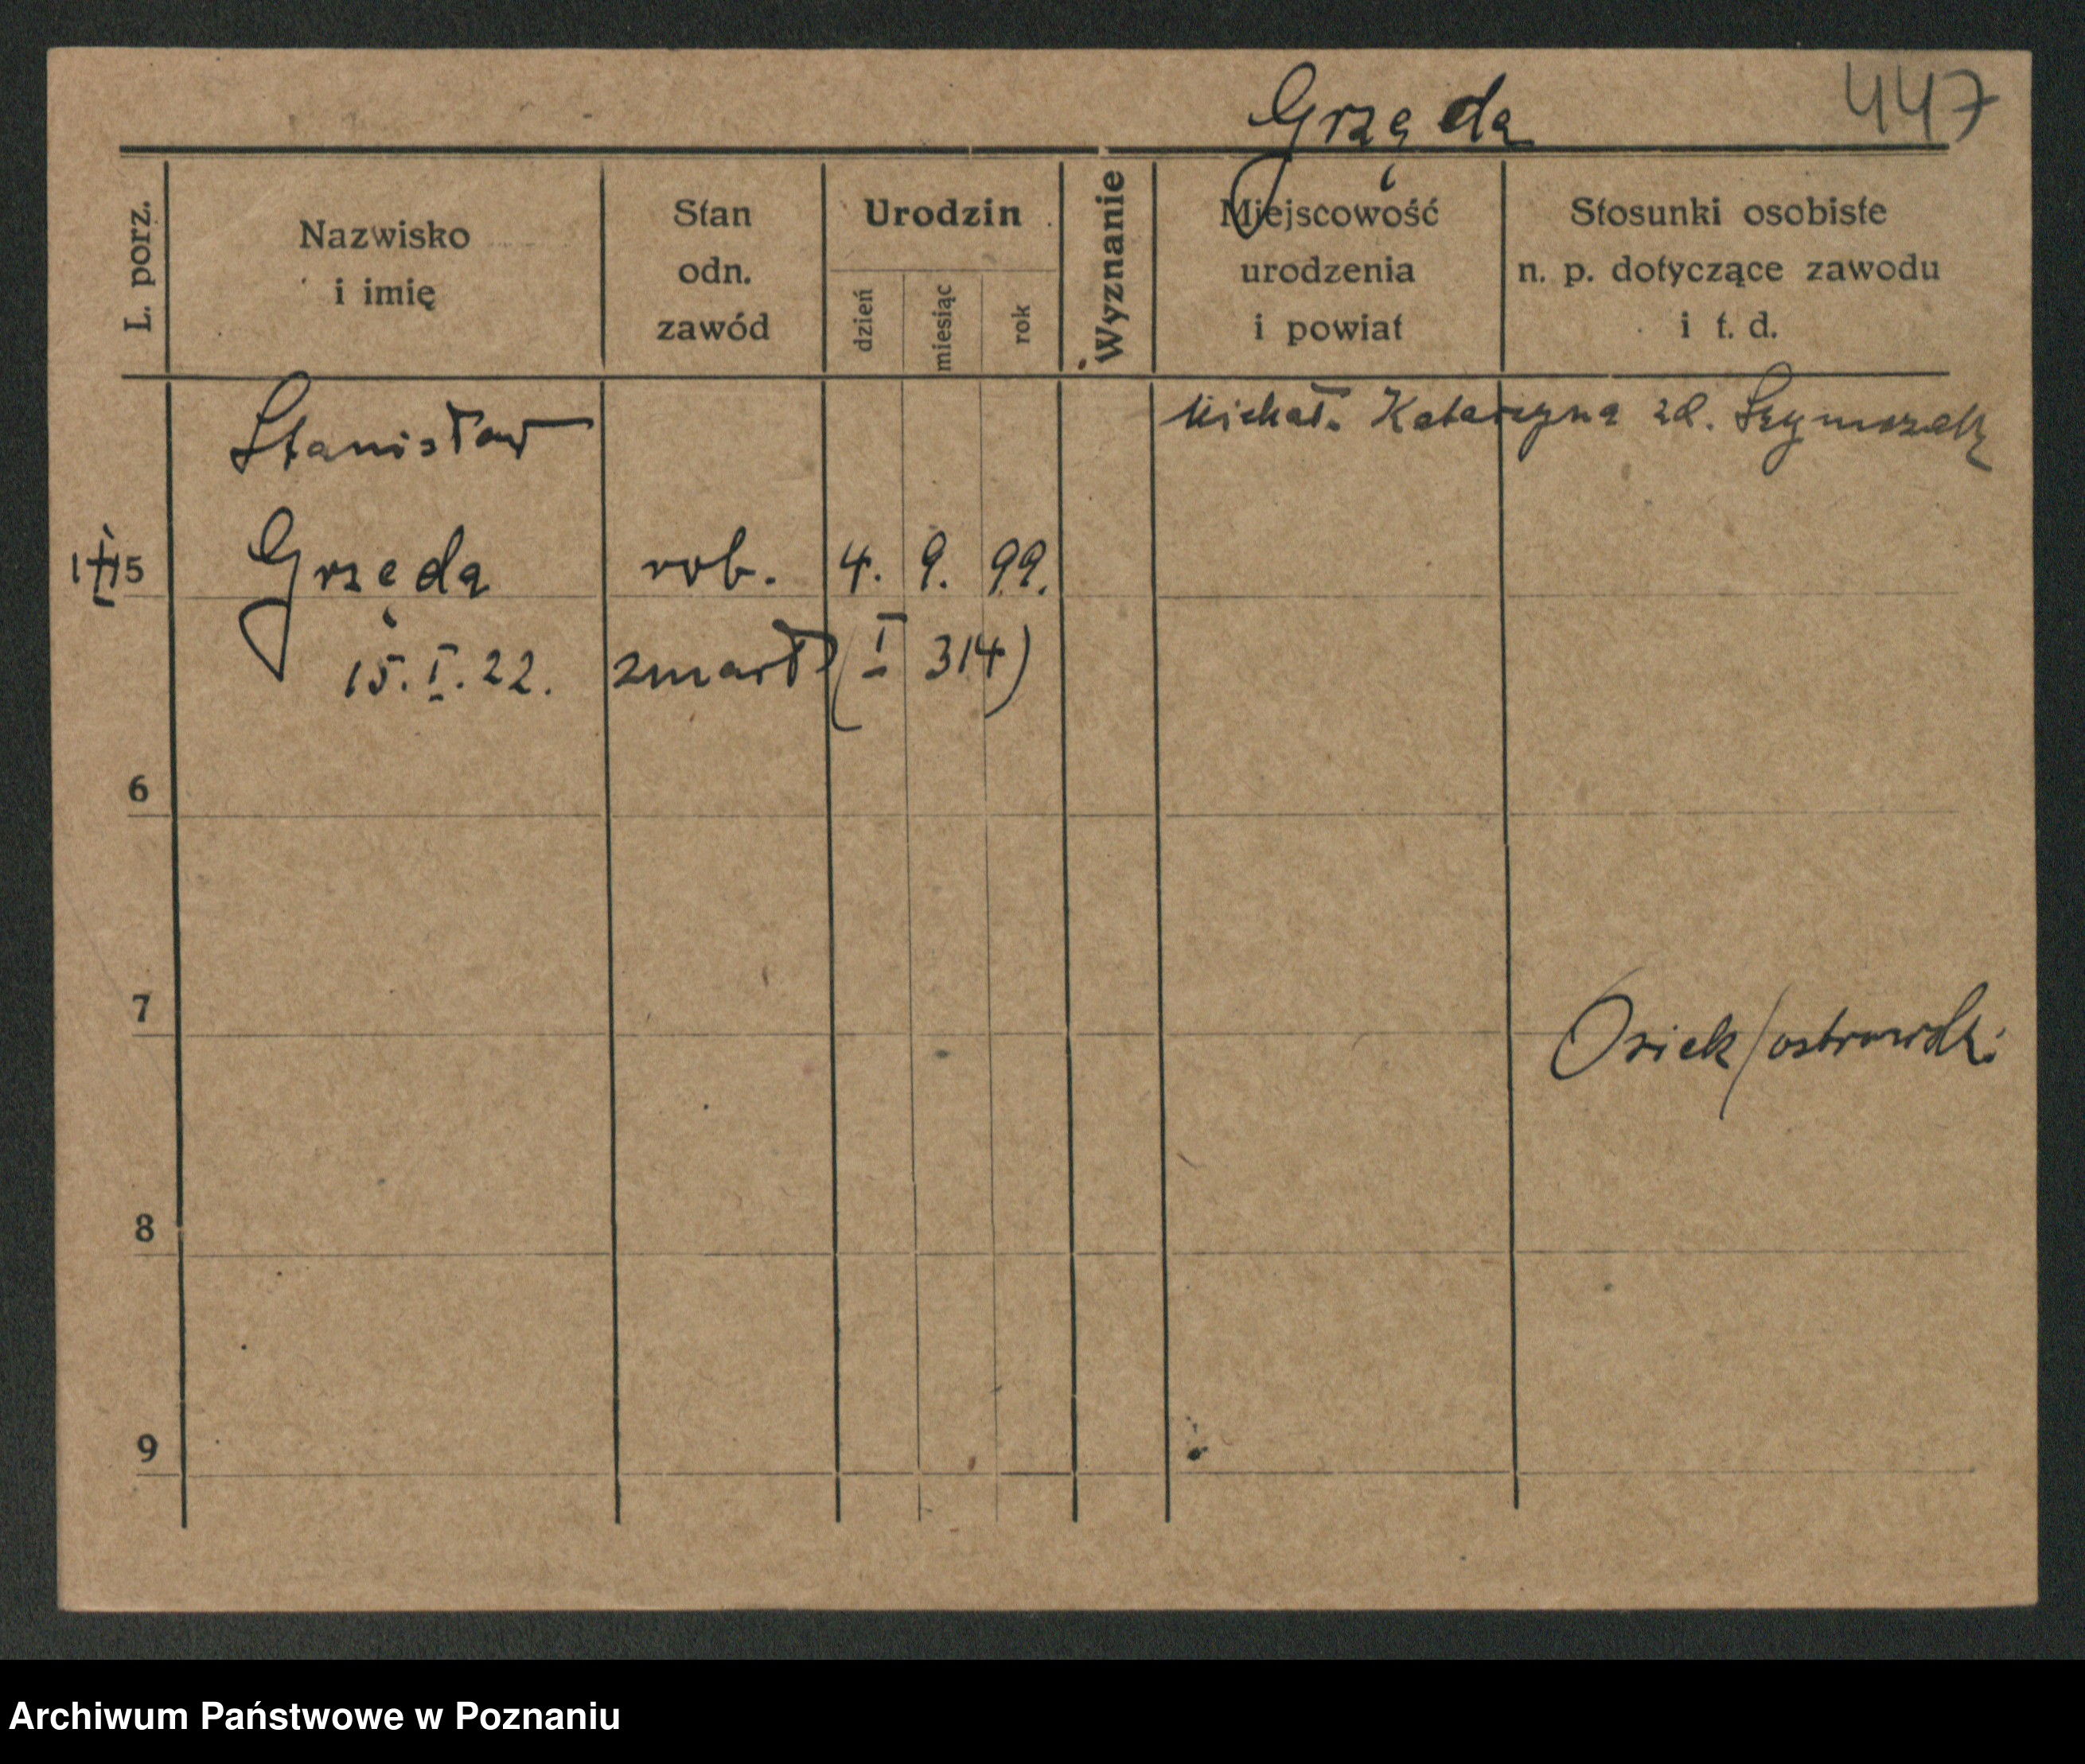 Grzęda 447
L. porz.
Nazwisko
i imię
Stan
odn.
zawód
Urodzin
dzień
miesiąc
rok
Wyznanie
Miejscowość
urodzenia
i powiat
Stosunki osobiste
n. p. dotyczące zawodu
i t. d.
Stanisław
Michał. Katarzyna zd.
5 Grzęda rob. 4. 9. 99.
15. I. 22. zmarł (I 314)
6
7
Osiek/ostrowski
8
9
Archiwum Państwowe w Poznaniu